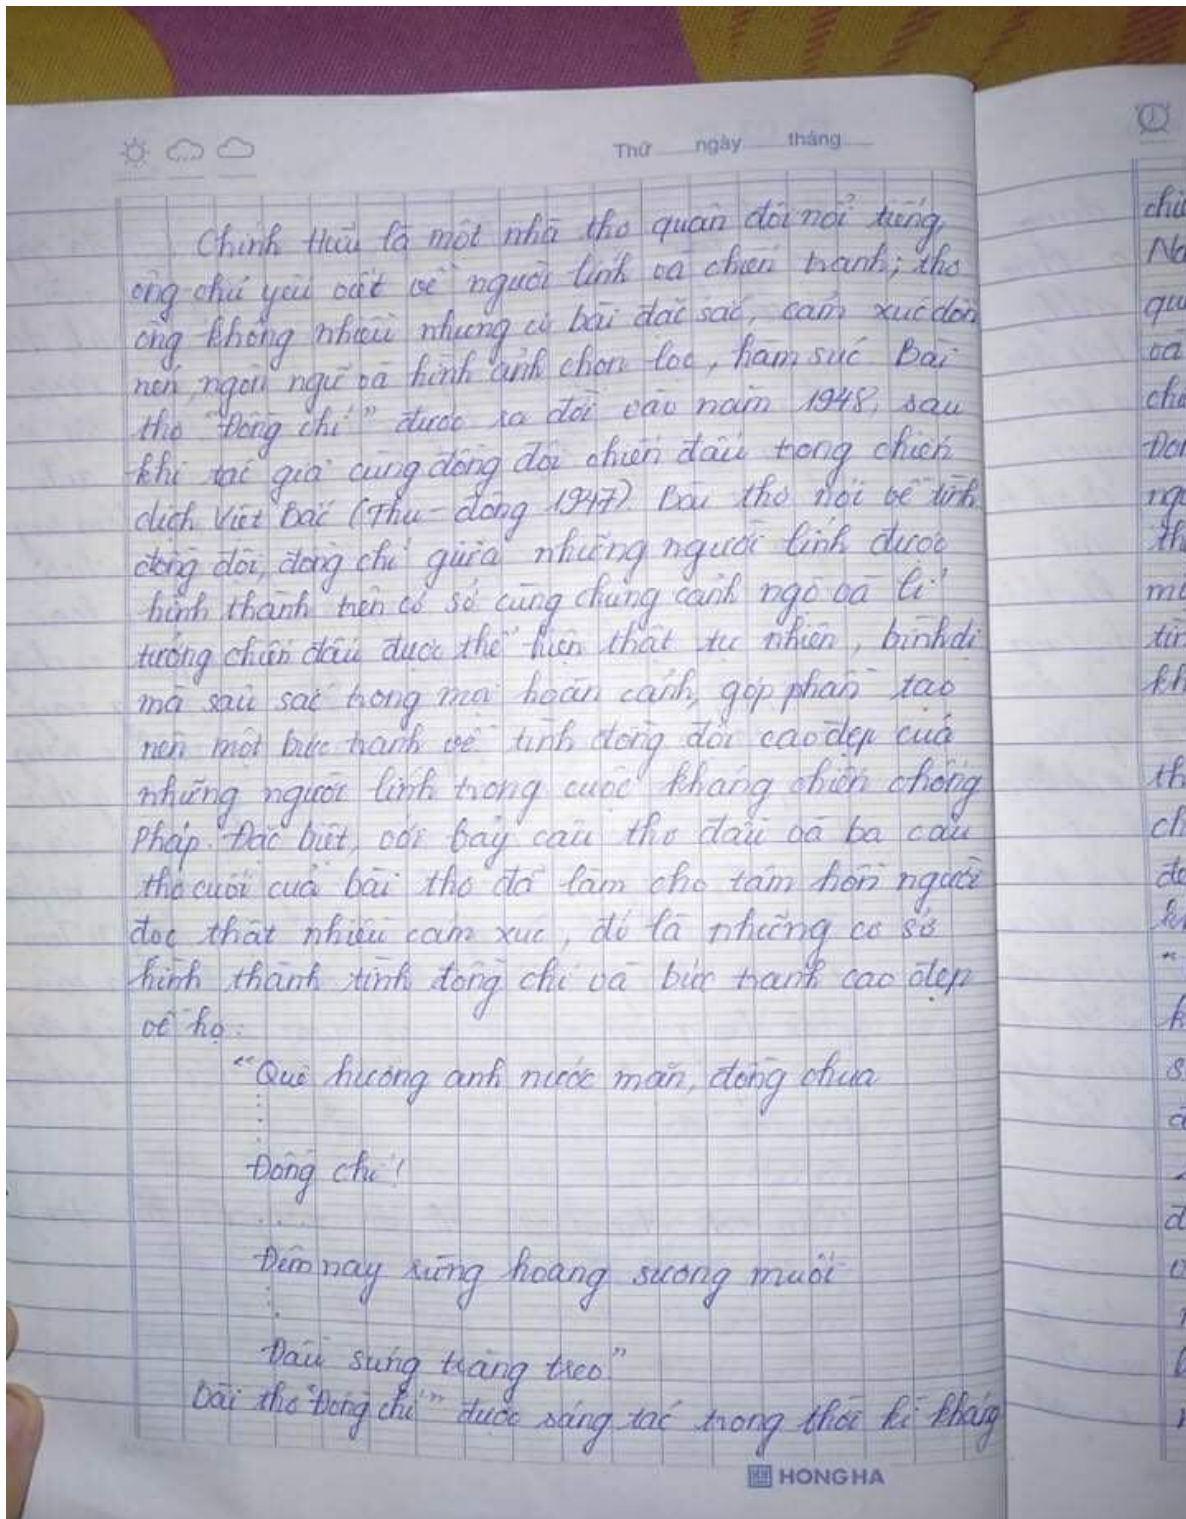 Thứ ngày tháng
Chính Hữu là một nhà thơ quân đội nổi tiếng,
ông chủ yếu viết về người lính và chiến tranh; thơ
ông không nhiều nhưng có bài đặc sắc, cảm xúc dồn
nén, ngôn ngữ và hình ảnh chọn lọc, hàm súc Bài
thơ "Đồng chí" được ra đời vào năm 1948, sau
khi tác giả cùng đồng đội chiến đấu trong chiến
dịch Việt Bắc (Thu - đông 1947). Bài thơ nói về tình
đồng đội, đồng chí giữa những người lính được
hình thành trên cơ sở cùng chung cảnh ngộ và lí
tưởng chiến đấu được thể hiện thật tự nhiên, bình dị
mà sâu sắc trong mọi hoàn cảnh, góp phần tạo
nên một bức tranh về tình đồng đội cao đẹp của
những người lính trong cuộc kháng chiến chống
Pháp. Đặc biệt, với bảy câu thơ đầu và ba câu
thơ cuối của bài thơ đã làm cho tâm hồn người
đọc thật nhiều cảm xúc, đó là những cơ sở
hình thành tình đồng chí và bức tranh cao đẹp
về họ:
"Quê hương anh nước mặn, đồng chua
Đồng chí!
....
Đêm nay rừng hoang sương muối
Đầu súng trăng treo"
Bài thơ "Đồng chí" được sáng tác trong thời kì kháng
HONG HA
chi
qu
và
ch
ng
th
mà
tìn
kh
th
ch